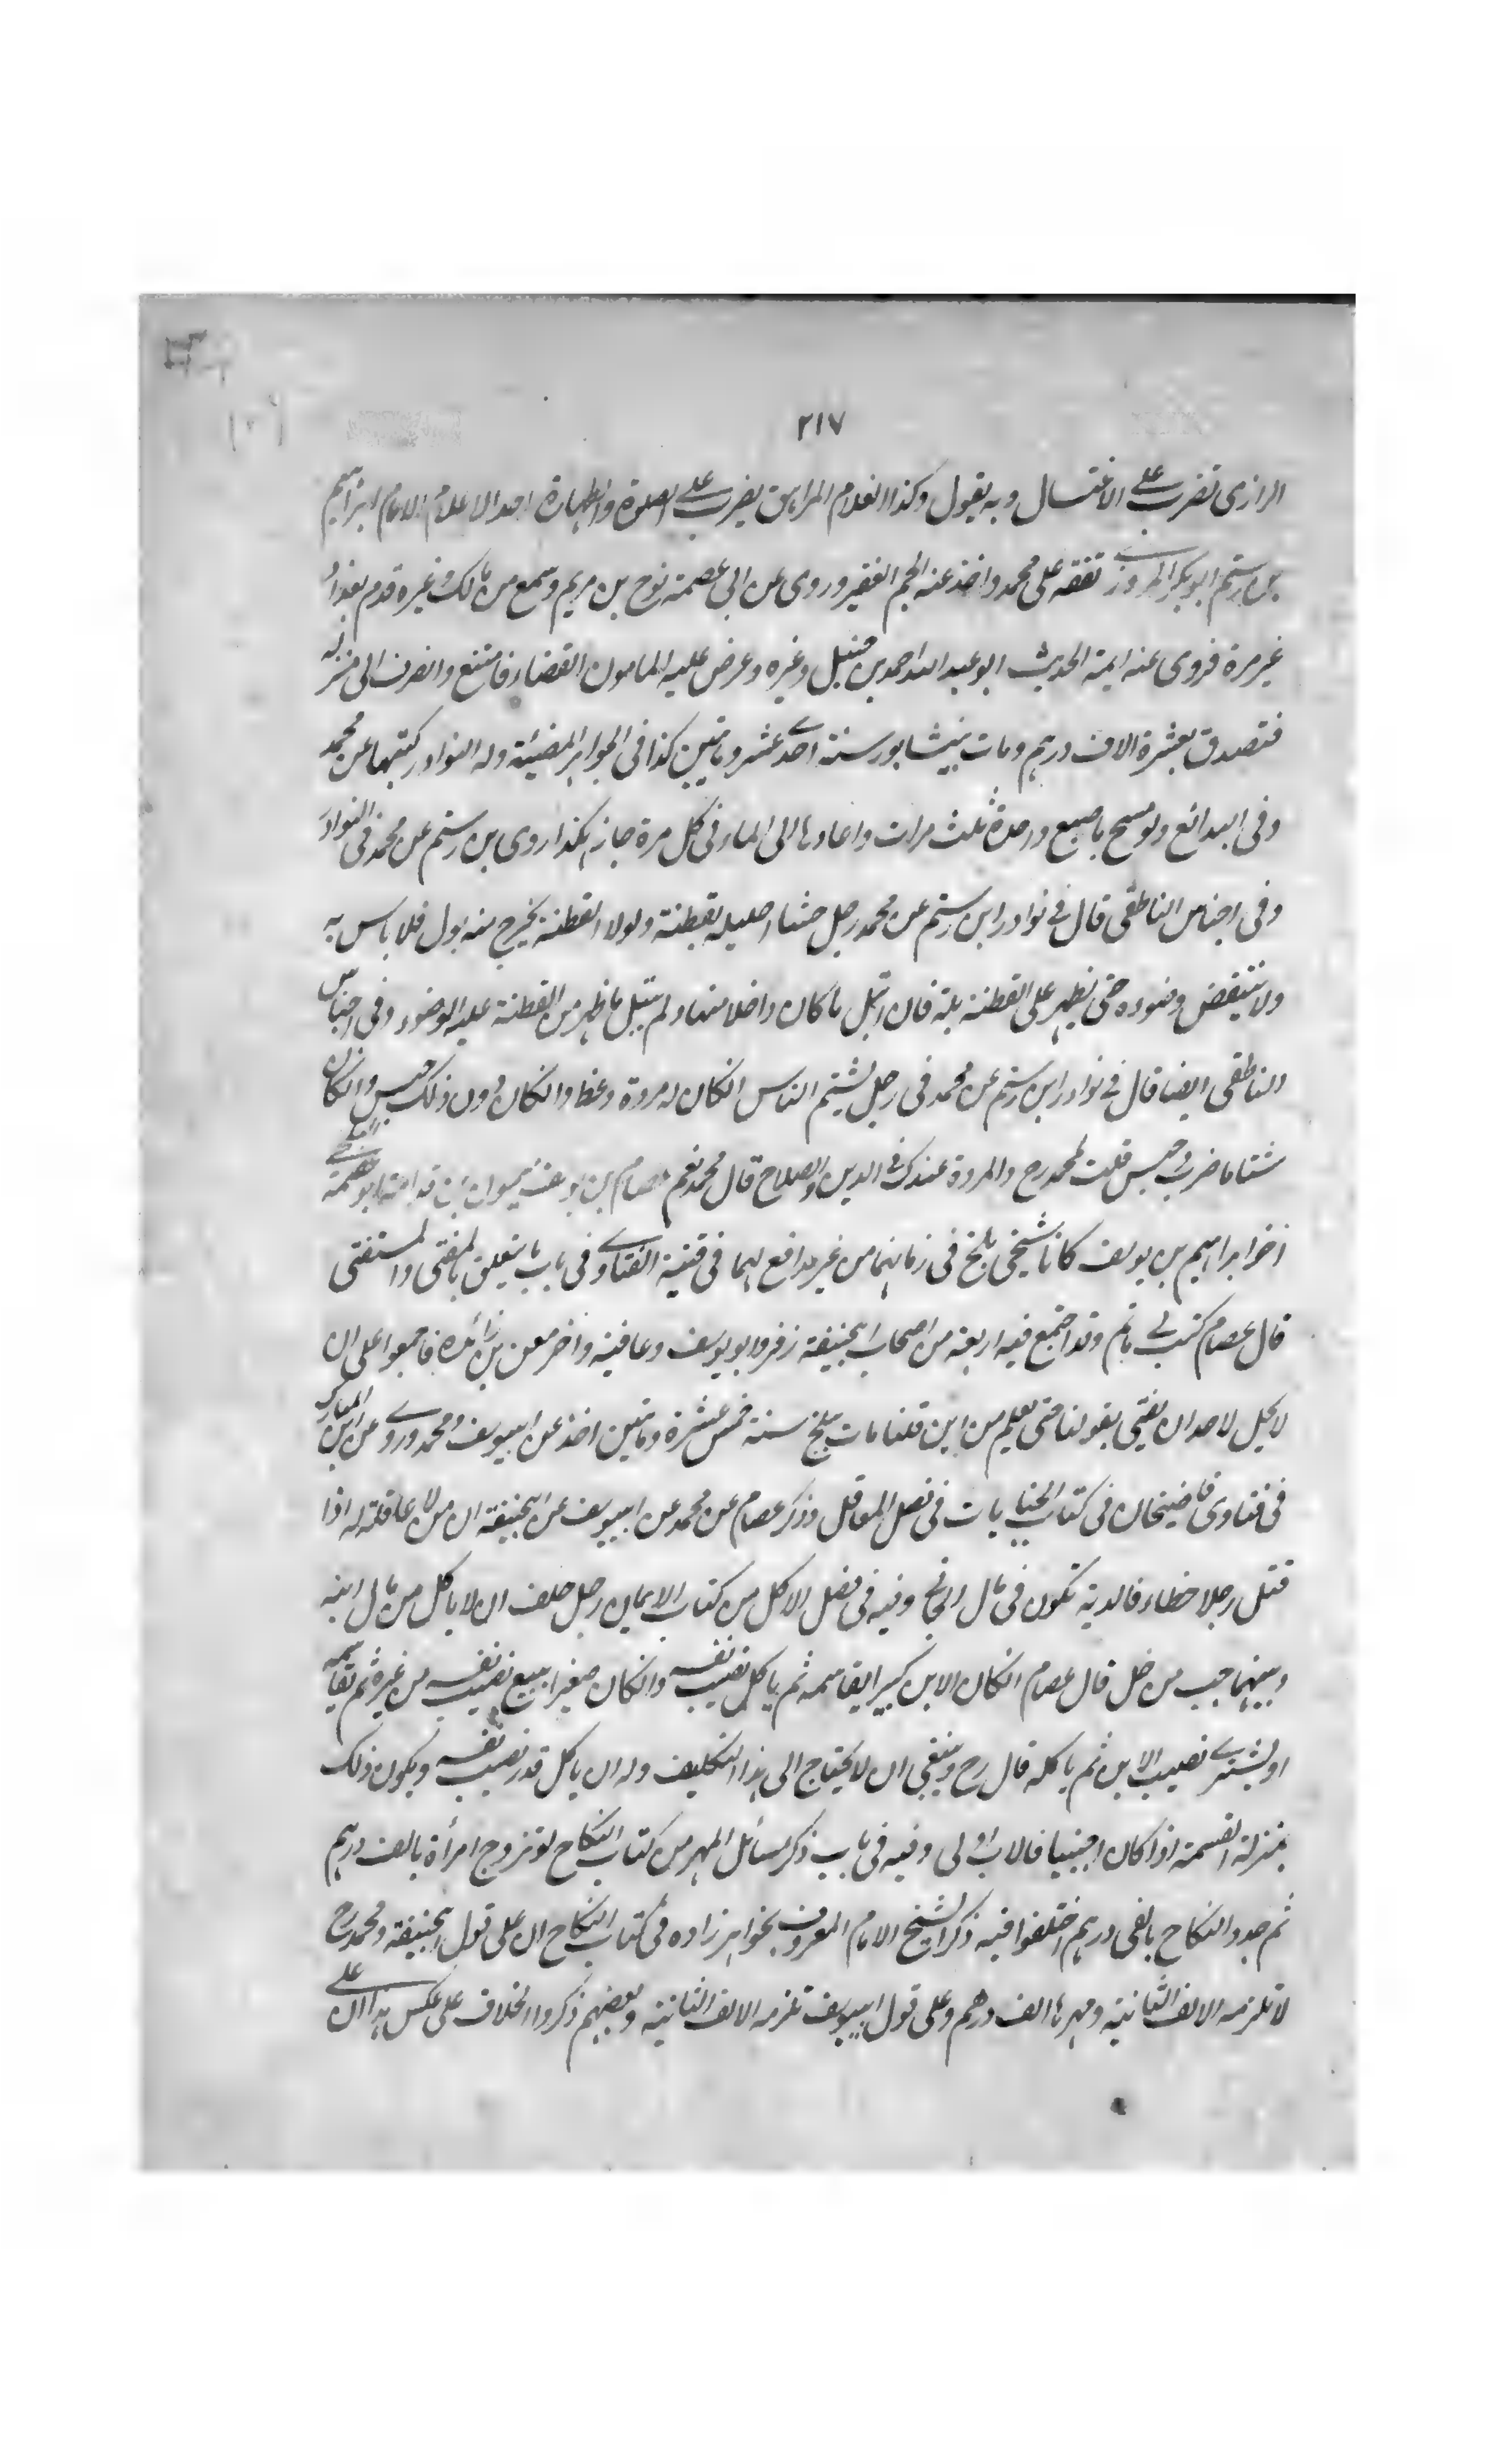 ٢١٧
الرازى تضرب على الاغتسال وبه يقول وكذا الغلام المراهق يضرب على الصلوة والطهارة احد الاعلام الامام ابراهيم
بن رستم ابو بكر المروزى تفقه على محمد واخذ عنه الجم الغفير وروى عن ابى عصمة نوح بن مريم وسمع من مالك وغيره قدم بغداد
غير مرة فروى عنه ايمة الحديث ابو عبد الله احمد بن حنبل وغيره وعرض عليه المامون القضاء فامتنع وانصرف الى منزله
فتصدق بعشرة الاف درهم ومات بنيشابور سنة احدى عشر ومايتين كذا فى الجواهر المضيئة وله النوادر كتبها عن محمد
وفى البدائع ولو مسح باصبع واحدة ثلث مرات واعادها الى الماء فى كل مرة جاز هكذا روى بن رستم عن محمد فى النوادر
وفى اجناس الناطقى قال فى نوادر ابن رستم عن محمد رجل حشا احليله بقطنة ولولا القطنة يخرج منه بول فلا باس به
ولا ينتقض وضوءه حتى يظهر على القطنة بلة فان ابتل ما كان داخلا منها ولم يبتل ما ظهر من القطنة عليه الوضوء وفى اجناس
الناطقى ايضا قال فى نوادر ابن رستم عن محمد فى رجل يشتم الناس انكان له مروة وعظ وانكان دون ذلك حبس وانكان
شتاما ضرب وحبس قلت لمحمد رح والمروة عندك فى الدين والصلاح قال محمد نعم عصام بن يوسف بن ميمون بن قدامة ابو عصمة البلخى
اخو ابراهيم بن يوسف كانا شيخى بلخ فى زمانهما من غير مدافع لهما فى قنية الفتاوى فى باب ما يتعلق بالمفتى والمستفتى
قال عصام كنت فى ماتم وقد اجتمع فيه اربعة من اصحاب ابيحنيفة زفر وابو يوسف وعافية واخر معن بن زائدة فاجمعوا على ان
لا يحل لاحد ان يفتى بقولنا حتى يعلم من اين قلنا مات ببلخ سنة خمس عشرة ومايتين اخذ عن ابييوسف ومحمد وروى عن ابن المبارك
فى فتاوى قاضيخان فى كتاب الجنايات فى فصل المعاقل وذكر عصام عن محمد عن ابييوسف عن ابيحنيفة ان من لا عاقلة له اذا
قتل رجلا خطاء فالدية تكون فى مال الجانى وفيه فى فصل الاكل من كتاب الايمان رجل حلف ان لا ياكل من مال ابنه
وبينهما حب من خل قال عصام انكان الابن كبيرا يقاسمه ثم ياكل نصيب نفسه وانكان صغيرا يبيع نصيب نفسه من غيره ثم يقاسمه
او يشترى نصيب الابن ثم ياكله قال رح وينبغى ان لا يحتاج الى هذا التكليف وله ان ياكل قدر نصيب نفسه ويكون ذلك
بمنزلة القسمة اذا كان اجنبيا فالاب اولى وفيه فى باب ذكر مسائل المهر من كتاب النكاح لو تزوج امرأة بالف درهم
ثم جدد النكاح بالفى درهم اختلفوا فيه ذكر الشيخ الامام المعروف بخواهرزاده فى كتاب النكاح ان على قول ابيحنيفة ومحمد رح
لا تلزمه الالف الثانية ومهرها الف درهم وعلى قول ابييوسف تلزمه الالف الثانية وبعضهم ذكروا الخلاف على عكس هذا ان على